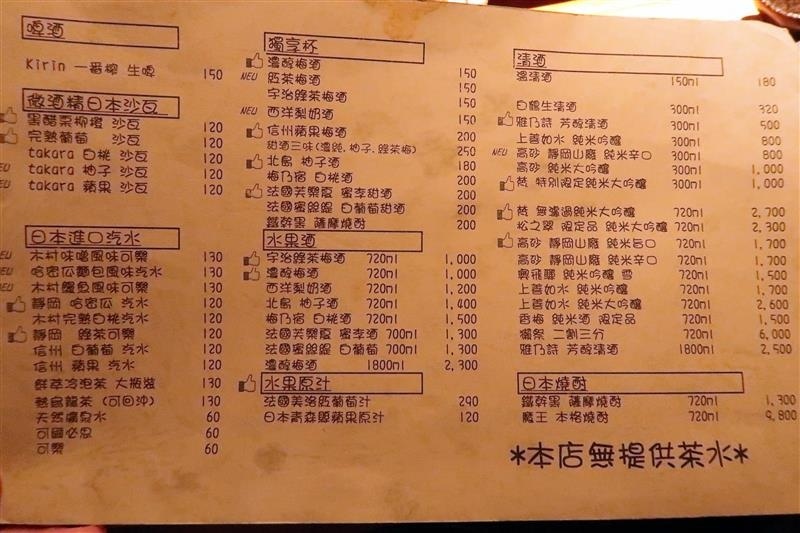 啤酒
Kirin 一番榨 生啤 150
微酒精日本沙瓦
黑醋栗柳橙 沙瓦 120
完熟葡萄 沙瓦 120
takara 白桃 沙瓦 120
takara 柚子 沙瓦 120
takara 蘋果 沙瓦 120
日本進口汽水
木村味噌風味可樂 130
哈密瓜麵包風味汽水 130
木村鰻魚風味可樂 130
靜岡 哈密瓜 汽水 120
木村完熟白桃汽水 120
靜岡 綠茶可樂 120
信州 白葡萄 汽水 120
信州 蘋果 汽水 120
鮮萃冷泡茶 大瓶裝 130
熱烏龍茶 (可回沖) 130
天然礦泉水 60
可爾必思 60
可樂 60
獨享杯
濃醇梅酒 150
NEW 紅茶梅酒 150
宇治綠茶梅酒 150
NEW 西洋梨奶酒 150
信州蘋果梅酒 200
甜酒三味(濃醇、柚子、綠茶梅) 250
北島 柚子酒 180
梅乃宿 白桃酒 200
法國芙樂夏 蜜李甜酒 200
法國蜜絲緹 白葡萄甜酒 200
鐵幹黑 薩摩燒酎 200
水果酒
宇治綠茶梅酒 720ml 1,000
濃醇梅酒 720ml 1,000
西洋梨奶酒 720ml 1,200
北島 柚子酒 720ml 1,400
梅乃宿 白桃酒 720ml 1,500
法國芙樂夏 蜜李酒 700ml 1,300
法國蜜絲緹 白葡萄 700ml 1,300
濃醇梅酒 1800ml 2,300
水果原汁
法國美洛紅葡萄汁 290
日本青森縣蘋果原汁 120
清酒
溫清酒 150ml 180
白鶴生清酒 300ml 320
雅乃詩 芳醇清酒 300ml 500
上善如水 純米吟釀 300ml 800
NEW 高砂 靜岡山廢 純米辛口 300ml 800
高砂 純米大吟釀 300ml 1,000
特別限定純米大吟釀 300ml 1,000
無濾過純米大吟釀 720ml 2,700
松之翠 限定品 純米大吟釀 720ml 2,300
高砂 靜岡山廢 純米旨口 720ml 1,700
高砂 靜岡山廢 純米辛口 720ml 1,700
奥飛驒 純米吟釀 雪 720ml 1,500
上善如水 純米吟釀 720ml 1,700
上善如水 純米大吟釀 720ml 2,600
香梅 純米酒 限定品 720ml 1,500
獺祭 二割三分 720ml 6,000
雅乃詩 芳醇清酒 1800ml 2,500
日本燒酎
鐵幹黑 薩摩燒酎 720ml 1,300
魔王 本格燒酎 720ml 9,800
*本店無提供茶水*